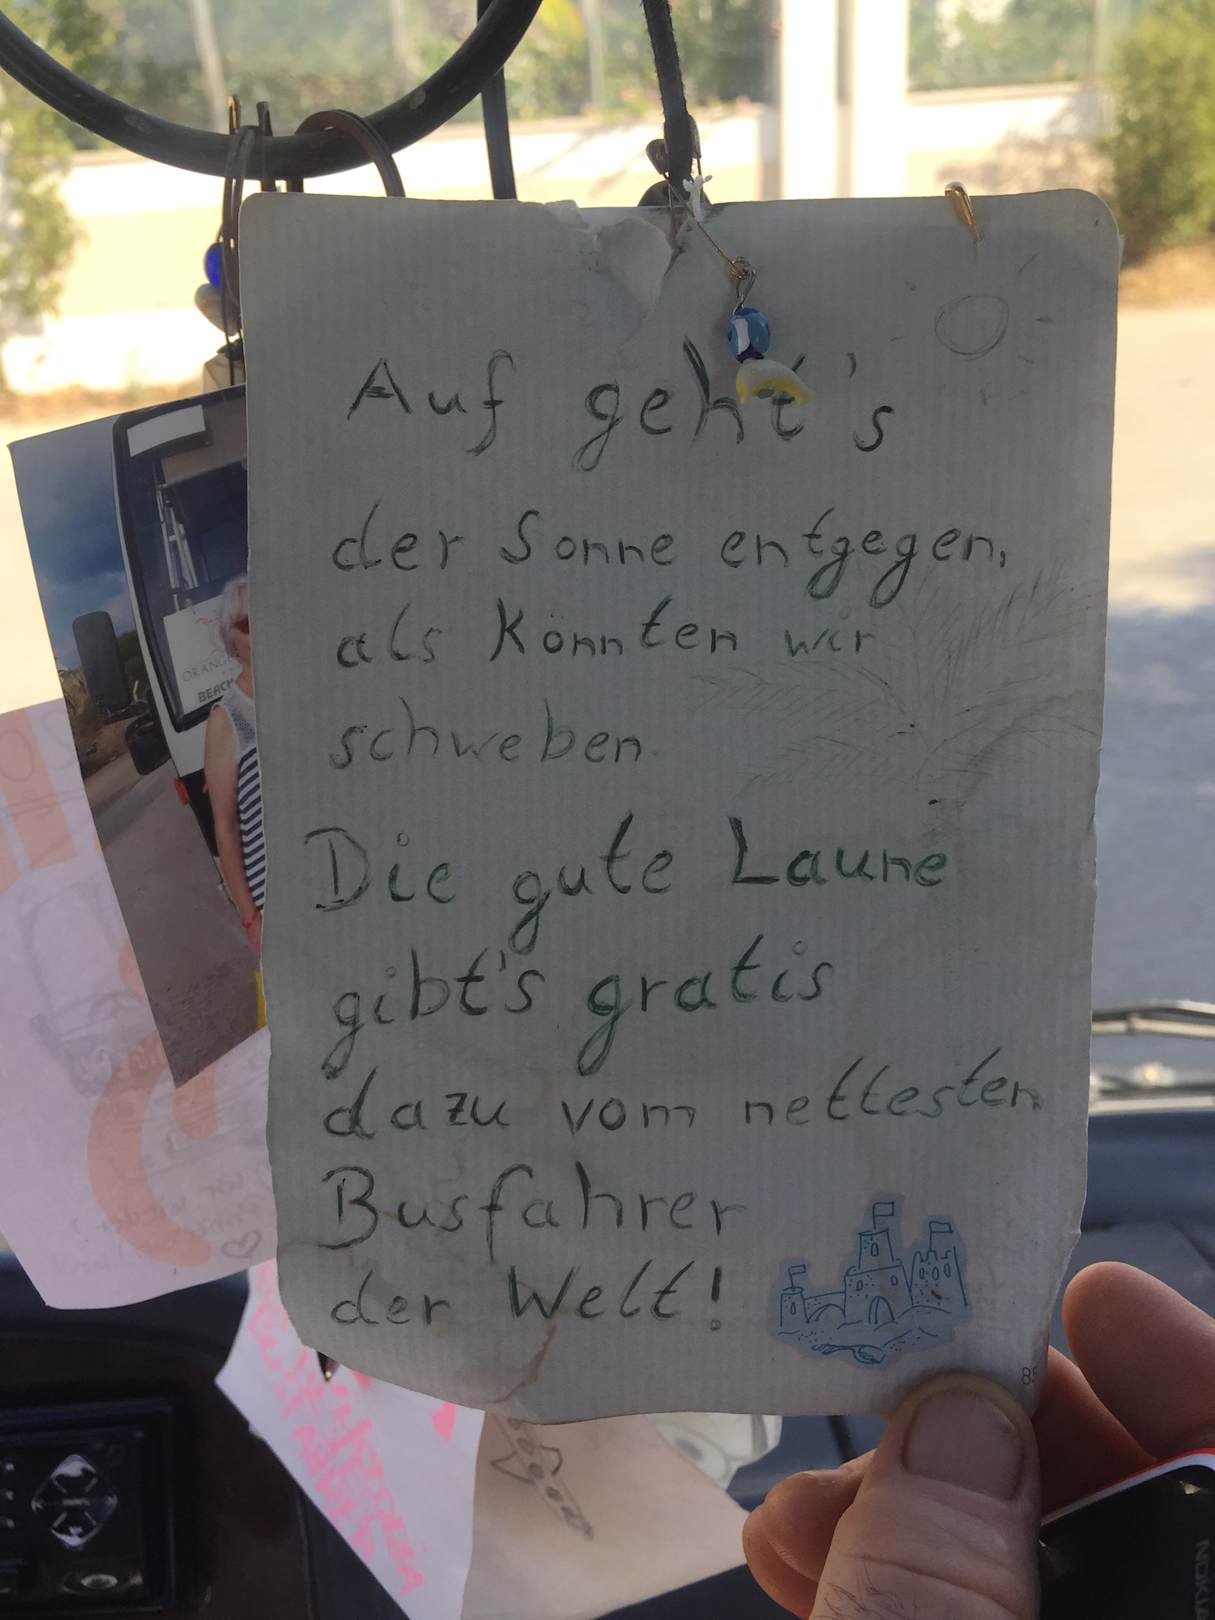 Auf geht's
der Sonne entgegen,
als Könnten wir
schweben.
Die gute Laune
gibt's gratis
dazu vom nettesten
Busfahrer
der Welt!
ORANGE
BEACH
NOKIA